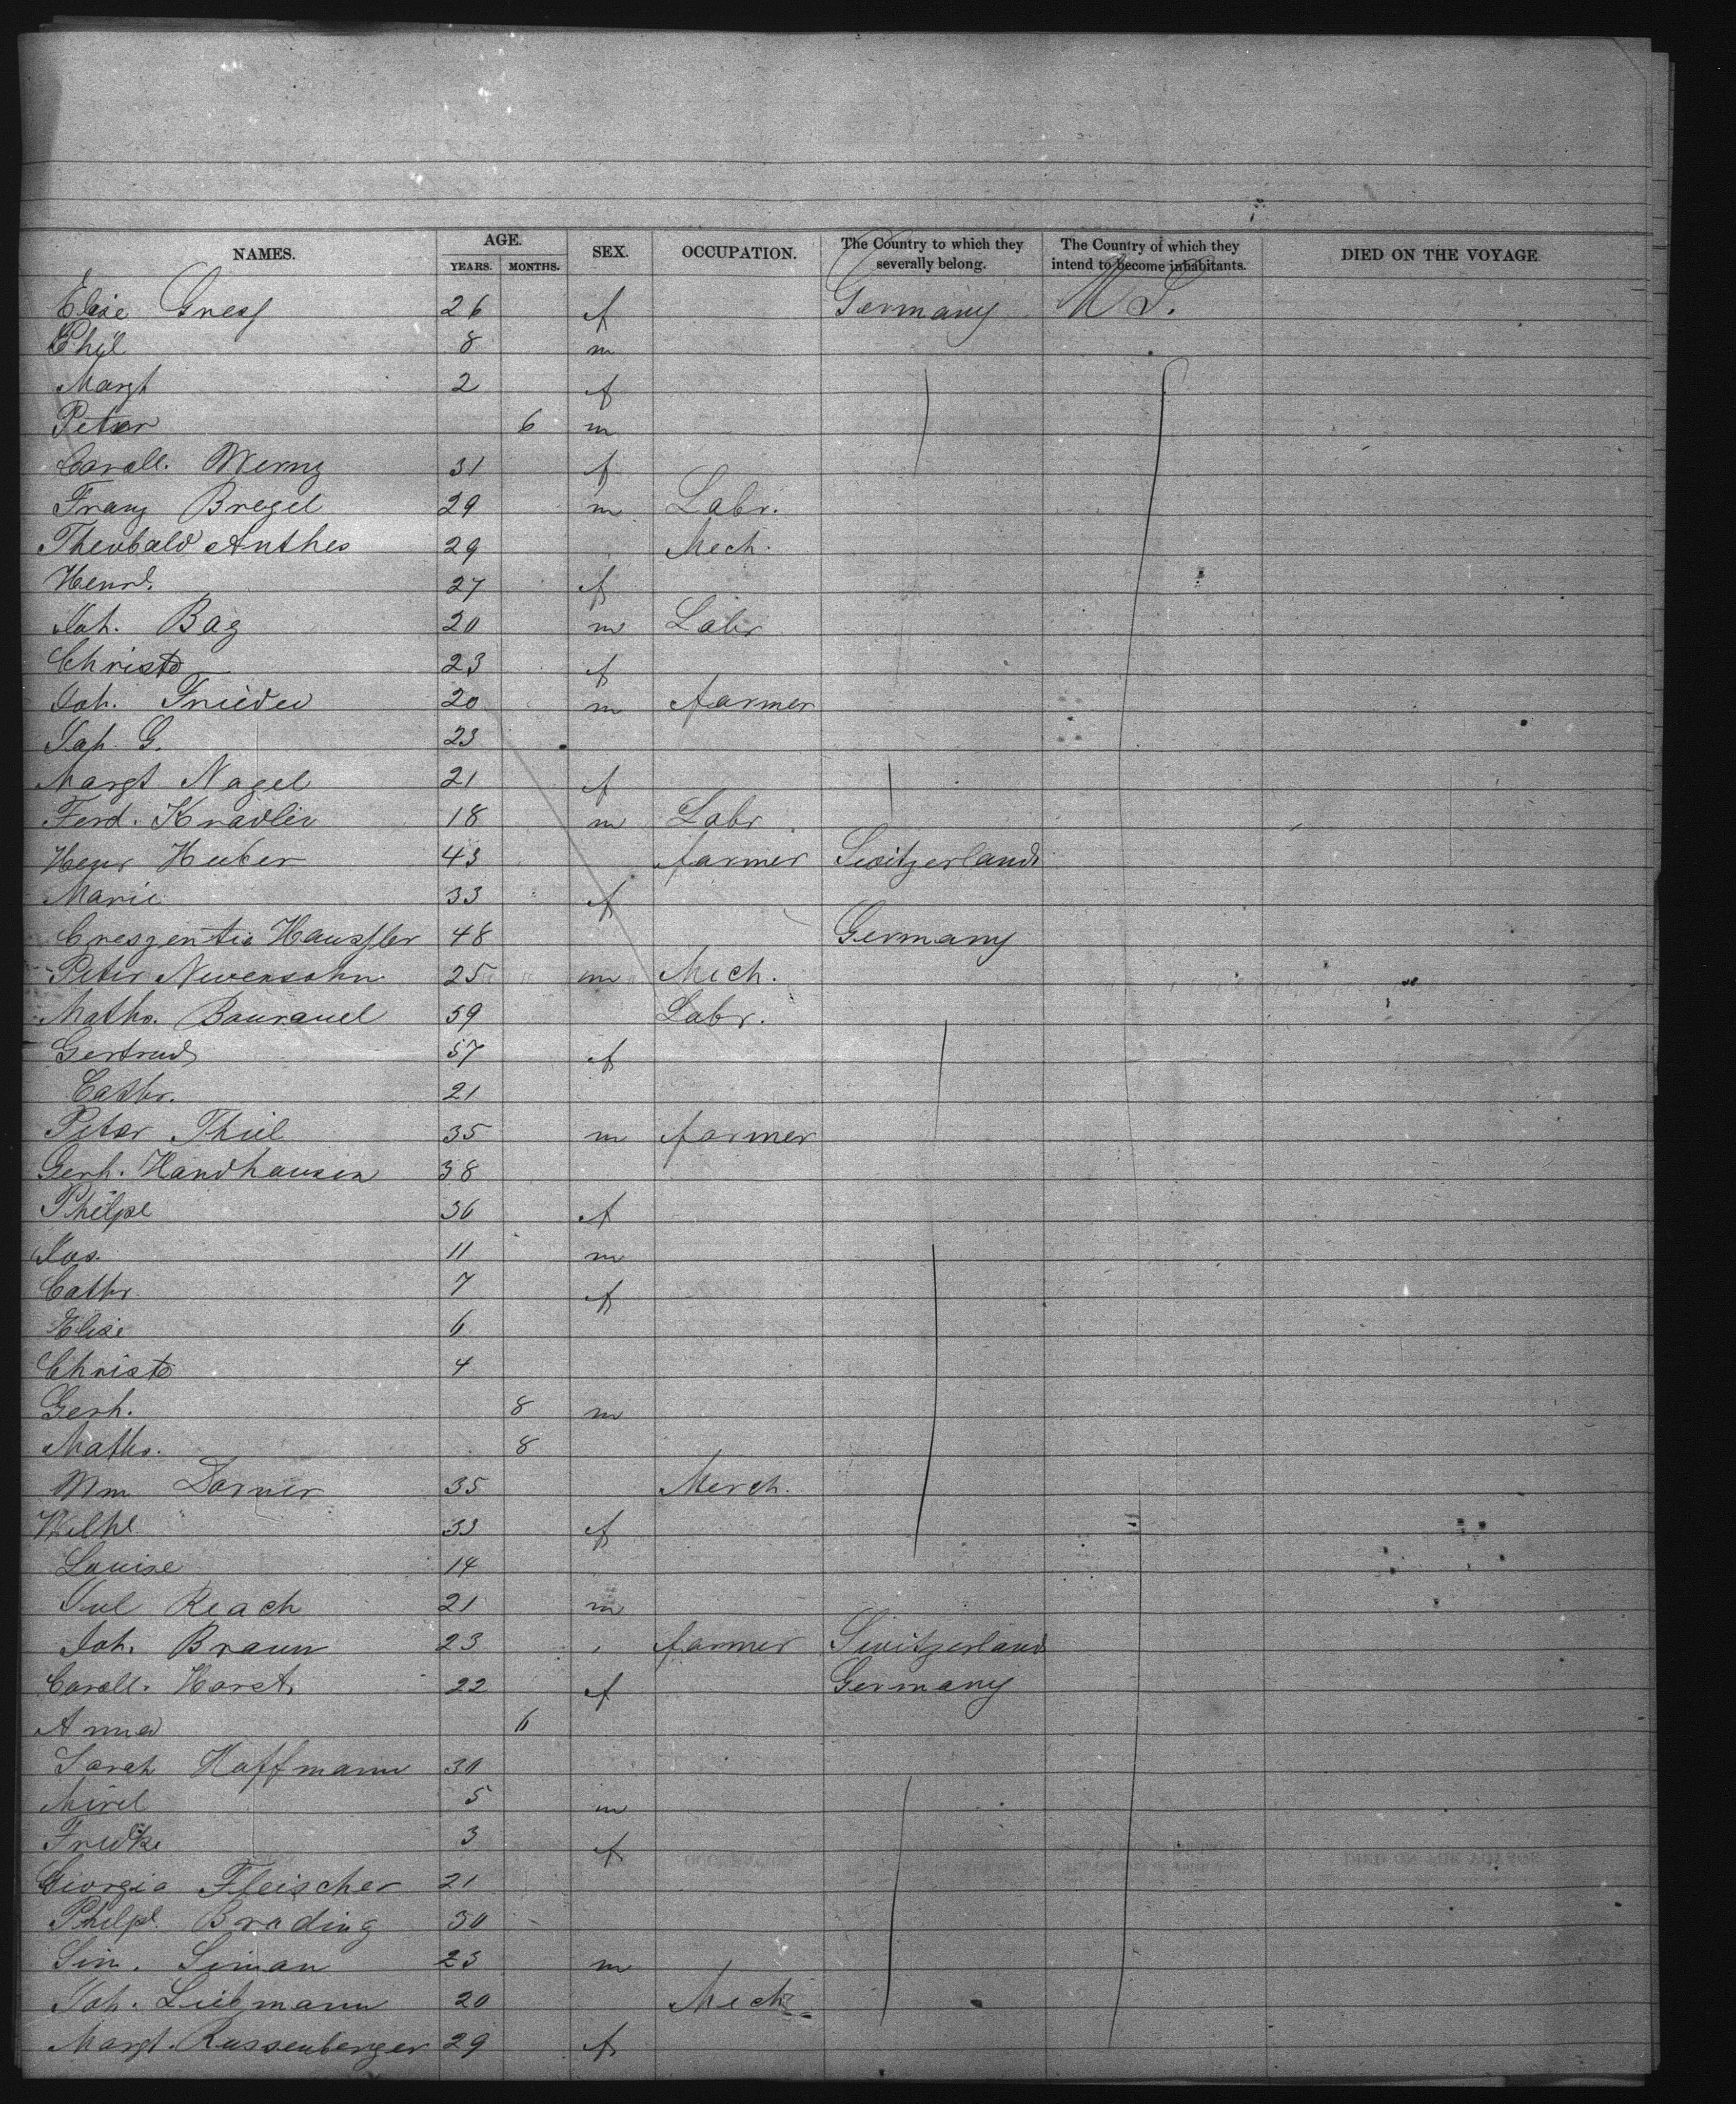 NAMES. AGE. SEX. OCCUPATION. The Country to which they severally belong. The Country of which they intend to become inhabitants. DIED ON THE VOYAGE
YEARS. MONTHS.
Elise 26 f Germany U S.
Phil 8 m
Margt 2 f
Peter 6 m
Caroll. Wernz 31 f
Franz Bregel 29 m Labr.
Theobald Anthes 29 Mech.
Henrl. 27 f
Joh. Baz 20 m Labr
Christe 23 f
Joh. 20 m farmer
G. 23
Margt Nagel 21 f
Ferd. Kradler 18 m Labr
Henr Huber 43 farmer Switzerland
Marie 33 f
Creszentia Haussler 48 Germany
Peter Neuensohn 25 m Mech.
Maths. 59 Labr.
Gertrud 57 f
Cathr. 21
Peter Thiel 35 m farmer
Gerh. Handhausen 38
Philpe 36 f
Jos. 11 m
Cathr. 7 f
Elise 6
Christe 4
Gerh. 8 m
Maths. 8
Wm Dorner 35 Merch.
Wilhl. 33 f
Louise 14
Jul Reach 21 m
Joh. Braun 23 farmer Switzerland
Caroll. Horst 22 f Germany
Anna 6
Sarah Hoffmann 30
Mirel 5 m
Friedke 3 f
Giorgia Fleischer 21
Philpl. Brading 30
Sim. Siman 23 m
Joh. Liebmann 20 Mech
Margt. Russenberger 29 f